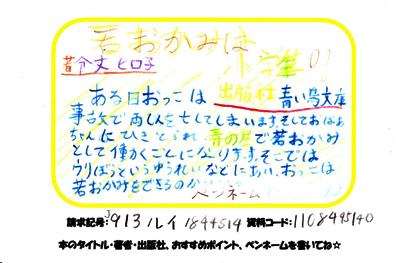 若おかみは
小学生!
著 令丈ヒロ子
出版社 青い鳥文庫
ある日おっこは
事故で両しんを亡してしまいます。そしておばあ
ちゃんにひきとられ、春の屋で若おかみ
として働くことになります。そこでは
ウリぼうというゆうれいなどにあい、おっこは
若おかみをできるのか
ペンネーム
請求記号: J913ルイ 1844514 資料コード: 1108445140
本のタイトル・著者・出版社、おすすめポイント、ペンネームを書いてね☆